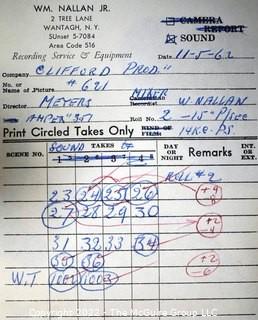 WM. NALLAN JR.
2 TREE LANE
WANTAGH, N. Y.
SUnset 5-7084
Area Code 516
CAMERA
REPORT
SOUND
Recording Service & Equipment Date 11-5-62
Company CLIFFORD PROD."
No. or Name of Picture # 621 MIXER
Director MEYERS W. NALLAN
AMPEX 351 Roll No. 2 - 15"
Print Circled Takes Only KIND OF FILM
SOUND
SCENE NO. TAKES DAY OR NIGHT Remarks INT. or EXT.
1 2 3 4
ROLL # 2
23 24 25 26 +9 -8
27 28 29 30
+2 -4
31 32 33 34
35 36 +2 -6
W.T. 1001 1002
© 2022 - The McGuire Group, LLC